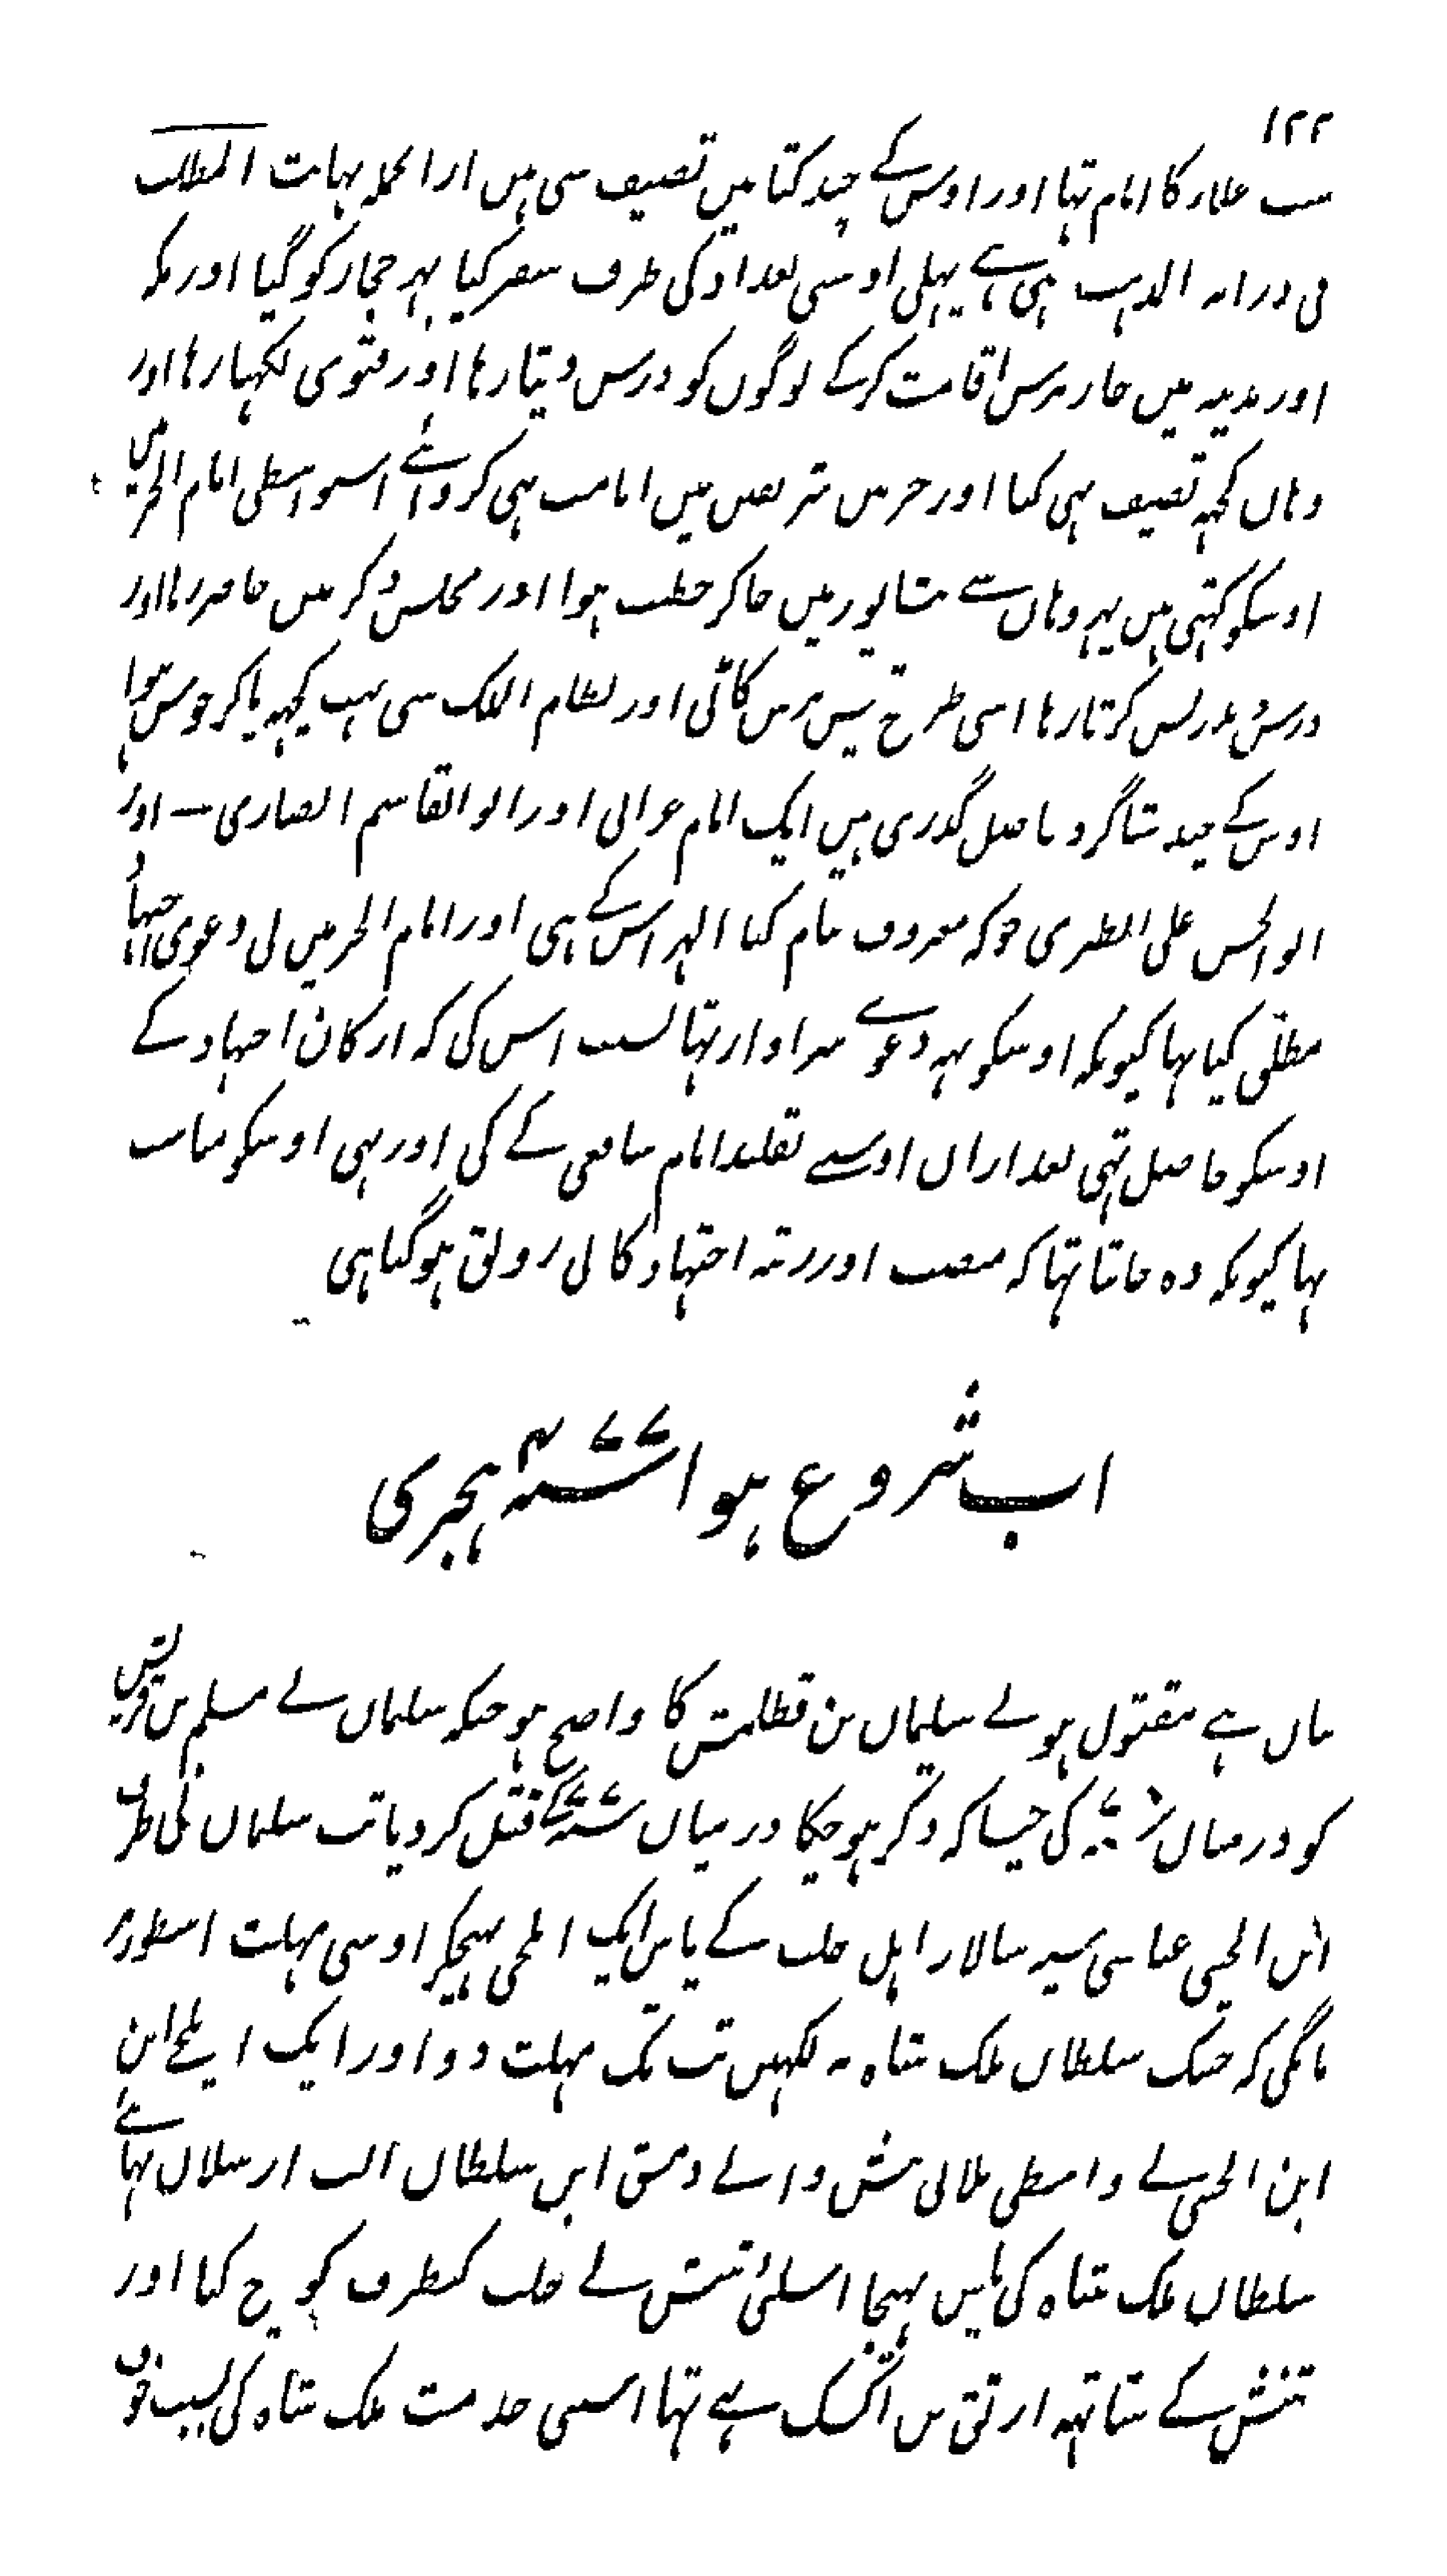 ۱۲۲
سب علماء کا امام تہا اور اوس کے چند کتابیں تصنیف سی ہیں ازا نجملہ نہایت المطلب
فی درایہ المذہب ہی ہے پہلی اوسی بغداد کی طرف سفر کیا پہر حجاز کو گیا اور مکہ
اور مدینہ میں چار برس اقامت کرکے لوگوں کو درس دیتا رہا اور فتوی لکہتا رہا اور
وہاں کچہہ تصنیف بہی کیا اور حرمین شریفین میں امامت بہی کروائے اسواسطی امام الحرمین
اوسکو کہتی ہیں پہر وہاں سے نیشاپور میں جاکر خطیب ہوا اور مجلس ذکر میں حاضر رہا اور
درس و تدریس کرتا رہا اسی طرح تیس برس کاٹی اور نظام الملک سی بہت کچہہ پاکر خوش ہوا
اوس کے چند شاگرد فاضل گذری ہیں ایک امام غزالی اور ابو القاسم انصاری — اور
ابو الحسن علی الطبری جوکہ معروف بنام کیا الہراس کے ہی اور امام الحرمین نی دعوی اجتہاد
مطلق کیا تہا کیونکہ اوسکو یہہ دعوے سزاوار تہا بسبب اس کی کہ ارکان اجتہاد کے
اوسکو حاصل تہی بعد ازاں اوسنے تقلید امام شافعی کے کی اور یہی اوسکو مناسب
تہا کیونکہ وہ جانتا تہا کہ منصب اور رتبہ اجتہاد کا بی رونق ہوگیا ہی
اب شروع ہوا سنہ ۴۷۷ ہجری
بیان ہے مقتول ہونے سلیمان بن قطلمش کا واضح ہو جبکہ سلیمان نے مسلم بن قریش
کو درمیان سنہ کی جیساکہ ذکر ہوچکا درمیان سنہ ۴۷۷ کے قتل کر دیا تب سلیمان نی طرف
ابن الحبیبی عباسی سپہ سالار اہل حلب کے پاس ایک ایلچی بہیجکر اوسی مہلت اسطور پر
مانگی کہ جبتک سلطان ملک شاہ نہ لکہیں تب تک مہلت دو اور ایک ایلچی ابن
ابن الحبیبی نے واسطی بلانی تتش والے دمشق ابن سلطان الب ارسلان بہائے
سلطان ملک شاہ کی پاس بہیجا اسلئی تتش نے حلب کیطرف کوچ کیا اور
تتش کے ساتہہ ارتق بن اکسک بہے تہا اسنی خدمت ملک شاہ کی بسبب خوف